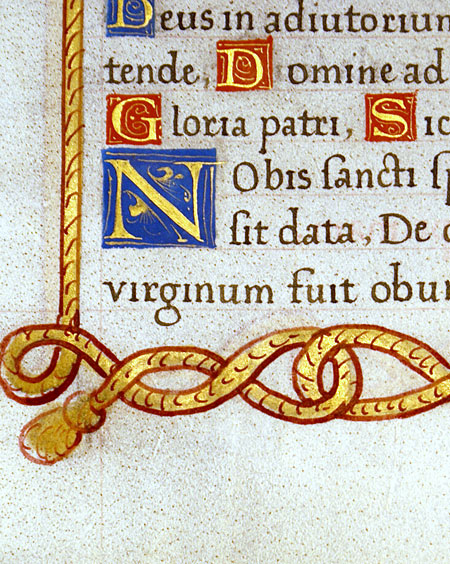 Deus in adiutorium
tende, Domine ad
Gloria patri, Sic
NObis ſancti ſp
ſit data, De
virginum fuit obu